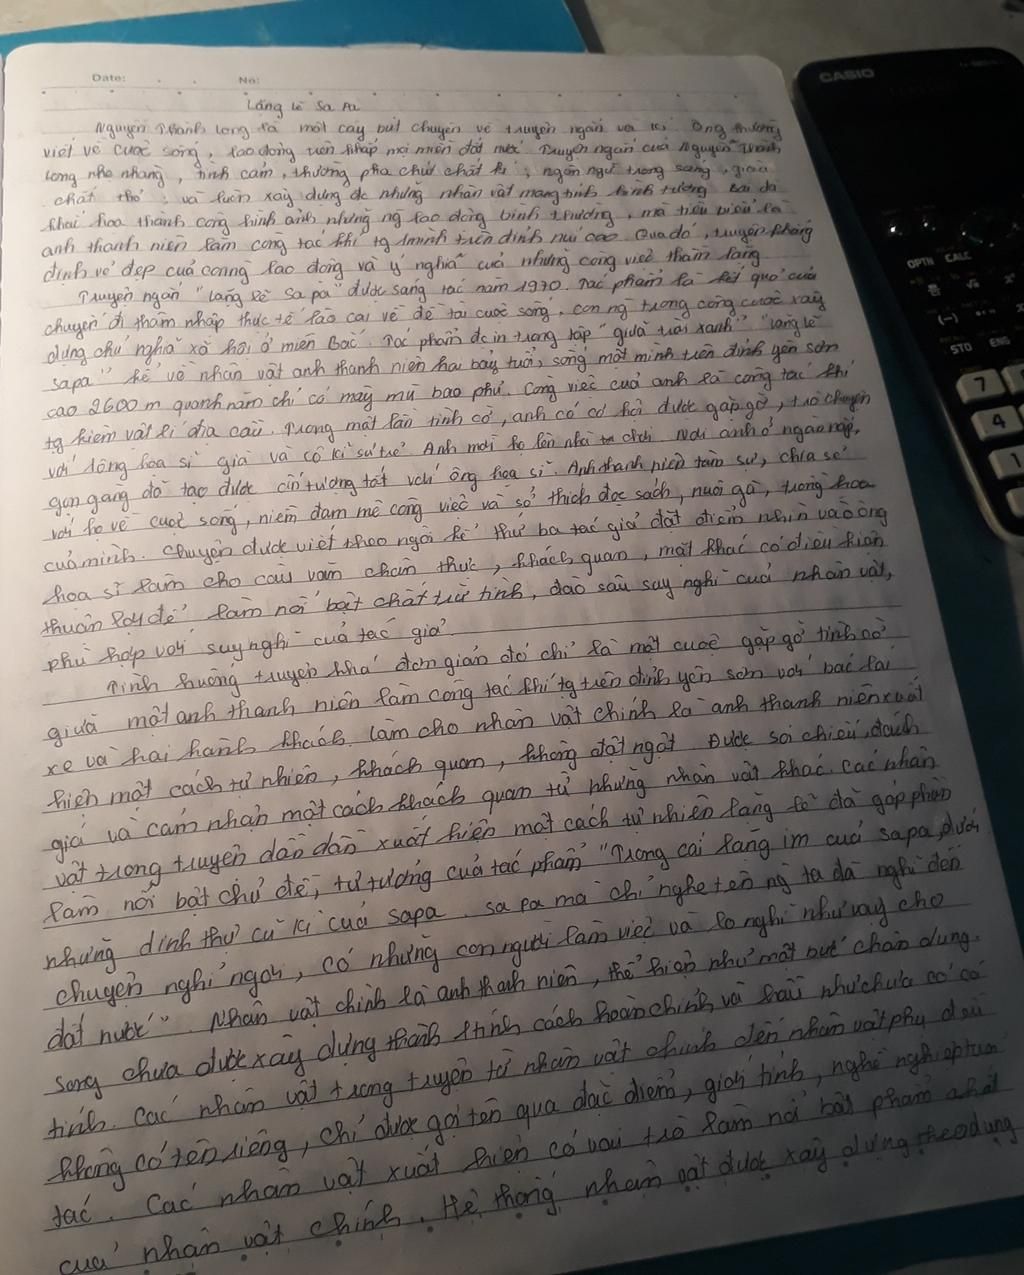 Date: No:
Lặng lẽ Sa Pa
Nguyễn Thành Long là một cây bút chuyên về truyện ngắn và kí. Ông thường
viết về cuộc sống, lao động trên khắp mọi miền đất nước. Truyện ngắn của Nguyễn Thành
Long nhẹ nhàng, tình cảm, thường pha chút chất kí, ngôn ngữ trong sáng, giàu
chất thơ, và luôn xây dựng đc những nhân vật mang tính hình tượng. Bài đã
khai hoa thành công hình ảnh những ng lao động bình thường, mà tiêu biểu là
anh thanh niên làm công tác khí tg 1 mình trên đỉnh núi cao. Qua đó, truyện khẳng
định vẻ đẹp của con ng lao động và ý nghĩa của những công việc thầm lặng
Truyện ngắn "Lặng lẽ Sa Pa" được sáng tác năm 1970. Tác phẩm là kết quả của
chuyến đi thâm nhập thực tế Lào Cai về đề tài cuộc sống, con ng trong công cuộc xây
dựng chủ nghĩa xã hội ở miền Bắc. Tác phẩm đc in trong tập "giữa trời xanh" "Lặng lẽ
sapa" kể về nhân vật anh thanh niên hai bảy tuổi, sống một mình trên đỉnh yên sơn
cao 2600 m quanh năm chỉ có mây mù bao phủ. Công việc của anh là công tác khí
tg kiêm vật lí địa cầu. Trong một lần tình cờ, anh có cơ hội được gặp gỡ, trò chuyện
với 1 ông họa sĩ già và cô kĩ sư trẻ. Anh mời họ lên nhà chơi. Nơi anh ở ngăn nắp,
gọn gàng đã tạo được ấn tượng tốt với ông họa sĩ. Anh thanh niên tâm sự, chia sẻ
với họ về cuộc sống, niềm đam mê công việc và sở thích đọc sách, nuôi gà, trồng hoa
của mình. Chuyện được viết theo ngôi kể thứ ba tác giả đặt điểm nhìn vào ông
họa sĩ làm cho câu văn chân thực, khách quan, mặt khác có điều kiện
thuận lợi để làm nổi bật chất trữ tình, đào sâu suy nghĩ của nhân vật,
phù hợp với suy nghĩ của tác giả.
Tình huống truyện khá đơn giản đó chỉ là một cuộc gặp gỡ tình cờ
giữa một anh thanh niên làm công tác khí tg trên đỉnh yên sơn với bác lái
xe và hai hành khách. Làm cho nhân vật chính là anh thanh niên xuất
hiện một cách tự nhiên, khách quan, không đột ngột. Được soi chiếu, đánh
giá và cảm nhận một cách khách quan từ những nhân vật khác. Các nhân
vật trong truyện dần dần xuất hiện một cách tự nhiên lặng lẽ đã góp phần
làm nổi bật chủ đề, tư tưởng của tác phẩm "Trong cái lặng im của sapa, dưới
những dinh thự cũ kĩ của sapa. sa pa mà chỉ nghe tên ng ta đã nghĩ đến
chuyện nghỉ ngơi, có những con người làm việc và lo nghĩ như vậy cho
đất nước". Nhân vật chính là anh thanh niên, thể hiện như một bức chân dung.
song chưa được xây dựng thành tính cách hoàn chỉnh và hầu như chưa có cá
tính. Các nhân vật trong truyện từ nhân vật chính đến nhân vật phụ đều
không có tên riêng, chỉ được gọi tên qua đặc điểm, giới tính, nghề nghiệp
tác. Các nhân vật xuất hiện có vai trò làm nổi bật phẩm chất
của nhân vật chính. Hệ thống nhân vật được xây dựng theo dụng
CASIO
OPTN CALC
STO ENG
(-)
7
4
1